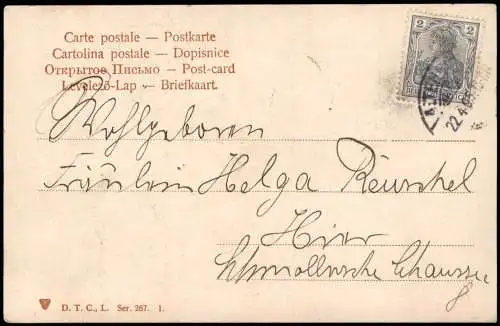 Carte postale — Postkarte
Cartolina postale — Dopisnice
Открытое Письмо — Post-card
Levelező-Lap — Briefkaart.
2 2
Wohlgeboren
Fräulein Helga Reuschel
Hier
Schmöllnsche Chaussee
8
D. T. C., L. Ser. 267. 1.